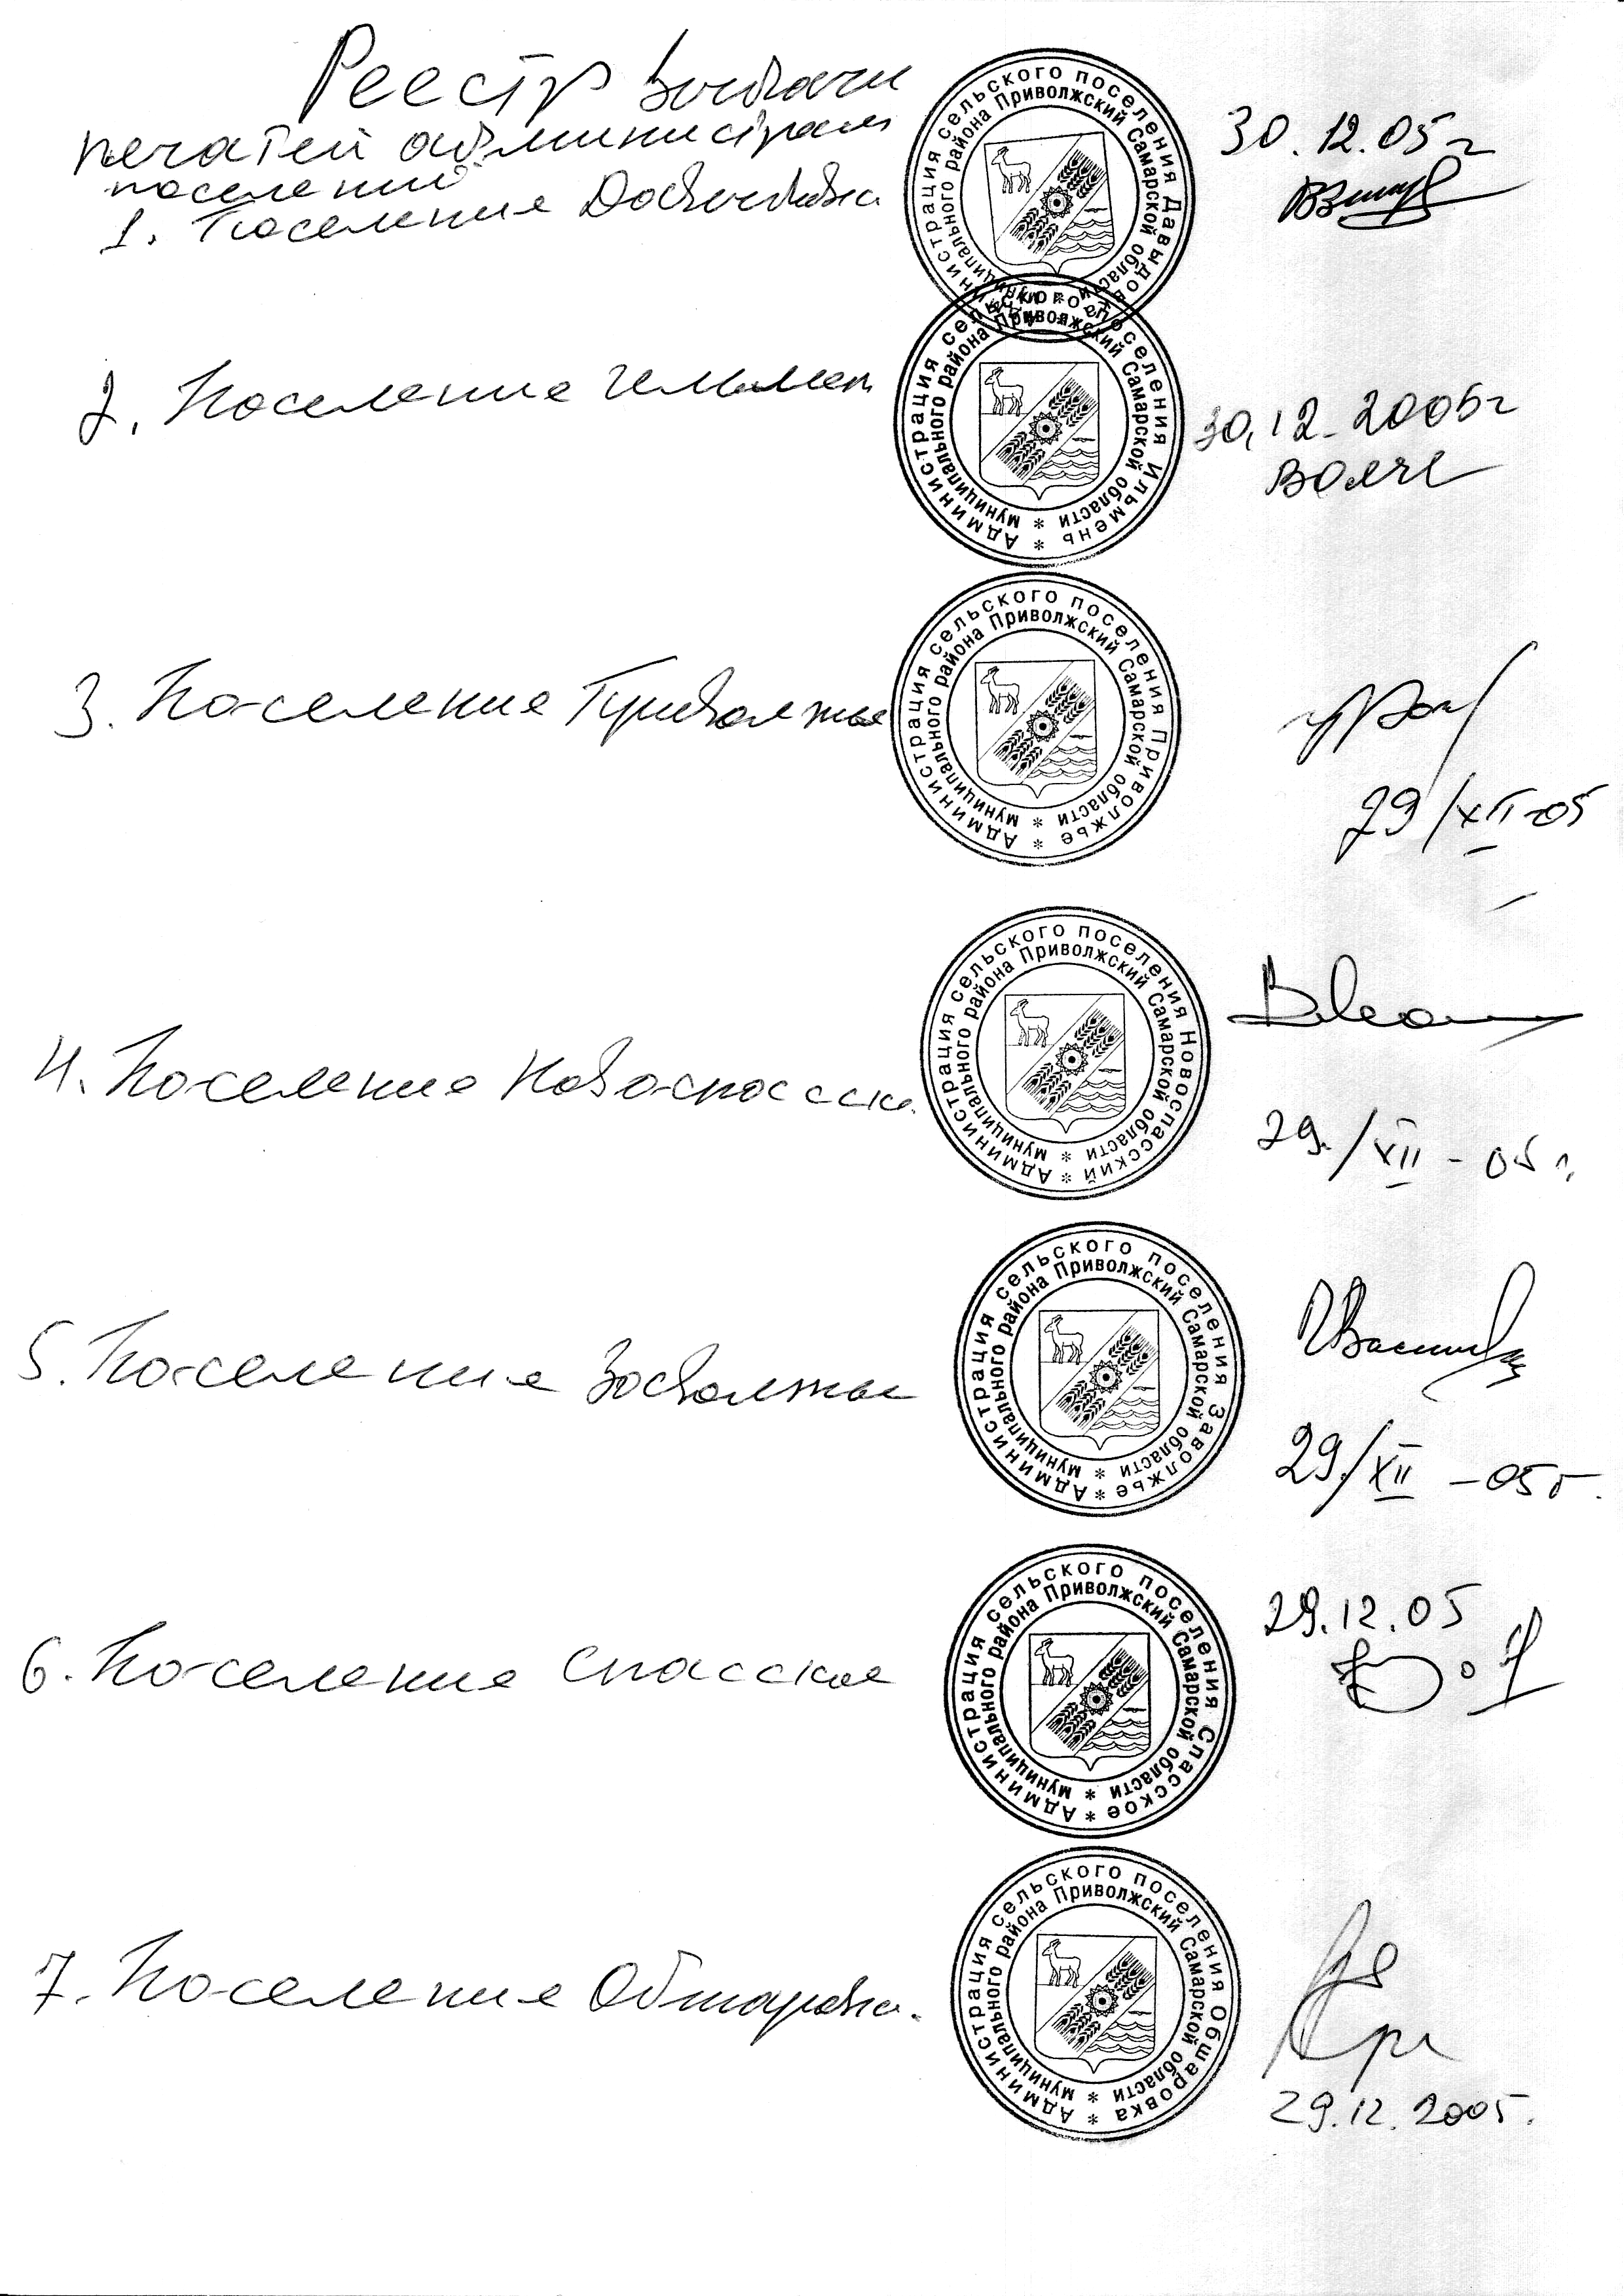 Реестр выдачи
печатей администрации
поселений
1. Поселение Давыдовка
Администрация сельского поселения Давыдовка
муниципального района Приволжский Самарской области
30.12.05г
2. Поселение Ильмень
Администрация сельского поселения Ильмень
муниципального района Приволжский Самарской области
30.12.2005г
3. Поселение Приволжье
Администрация сельского поселения Приволжье
муниципального района Приволжский Самарской области
29/XII-05
4. Поселение Новоспасский
Администрация сельского поселения Новоспасский
муниципального района Приволжский Самарской области
29./XII - 05 г.
5. Поселение Заволжье
Администрация сельского поселения Заволжье
муниципального района Приволжский Самарской области
29./XII - 05 г.
6. Поселение Спасское
Администрация сельского поселения Спасское
муниципального района Приволжский Самарской области
29.12.05
7. Поселение Обшаровка.
Администрация сельского поселения Обшаровка
муниципального района Приволжский Самарской области
29.12.2005.